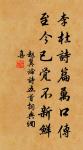 李杜詩篇萬口傳
至今已覺不新鮮
趙翼論詩五首詞典網